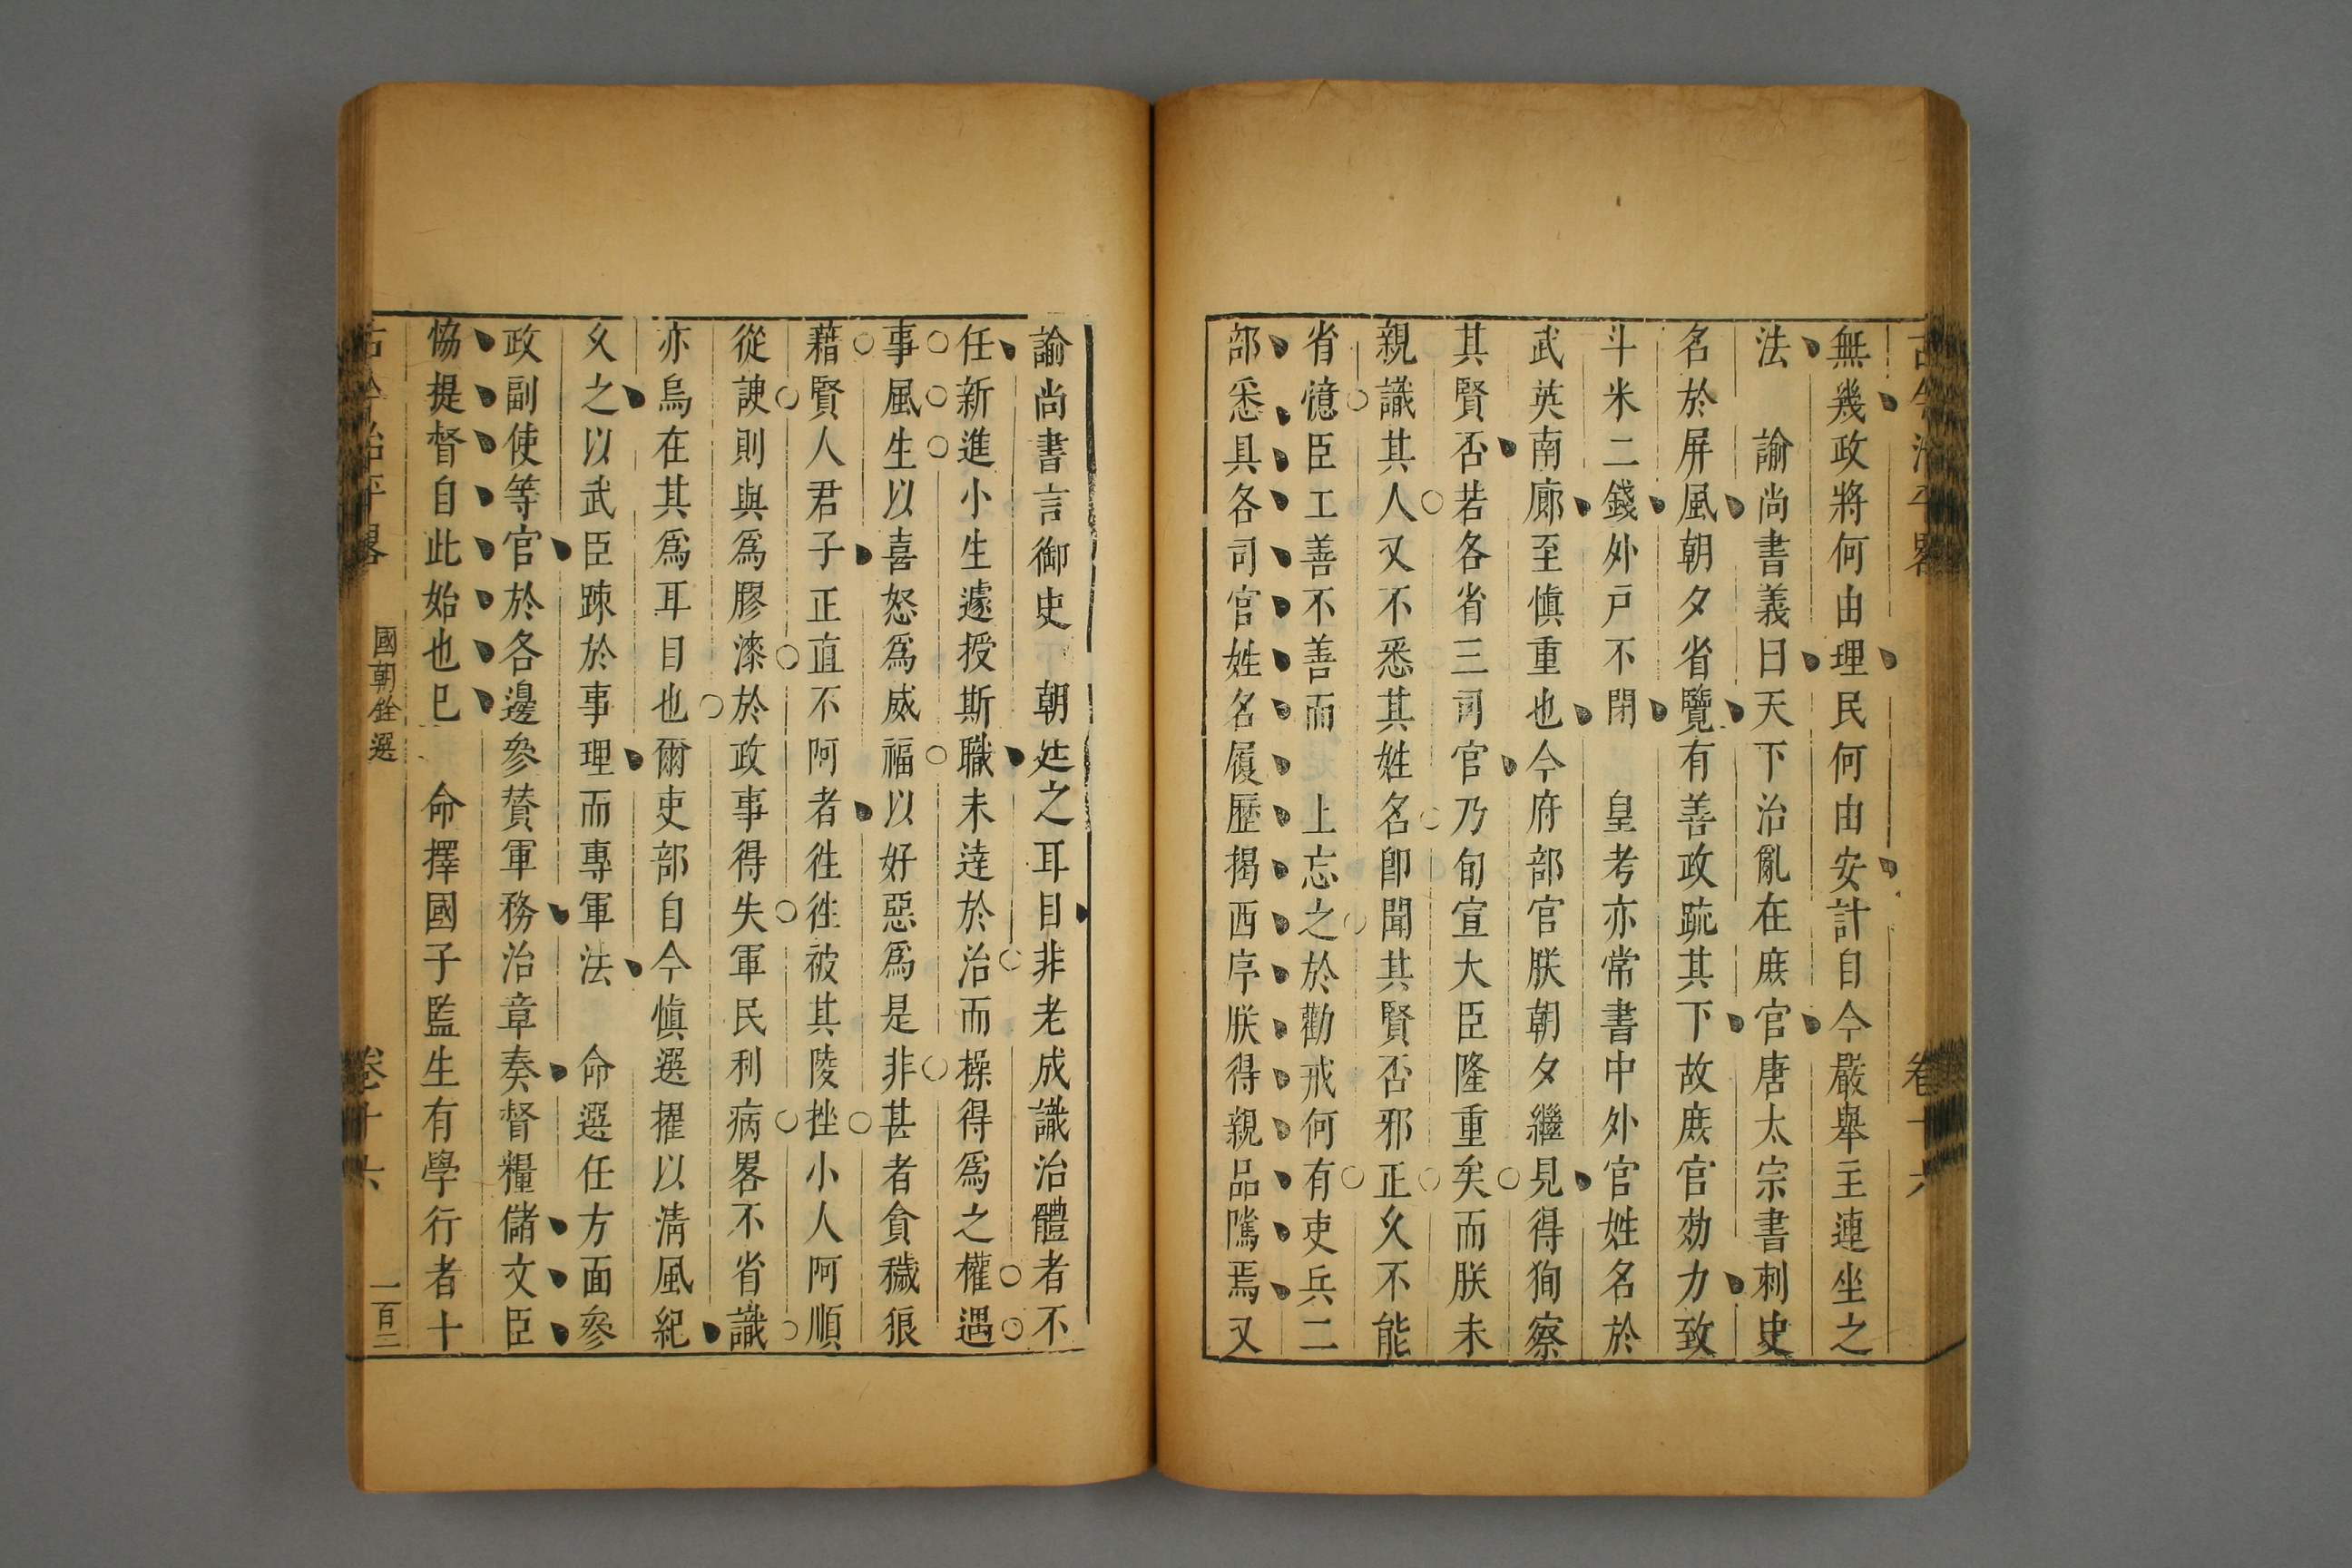 古今治平畧 卷十六
無幾政將何由理民何由安計自今嚴舉主連坐之
法　諭尚書義曰天下治亂在庻官唐太宗書刺史
名於屏風朝夕省覽有善政䟽其下故庻官効力致
斗米二錢外戸不閉　皇考亦常書中外官姓名於
武英南廊至愼重也今府部官朕朝夕繼見得狥察
其賢否若各省三司官乃旬宣大臣隆重矣而朕未
親識其人又不悉其姓名卽聞其賢否邪正久不能
省憶臣工善不善而　上忘之於勸戒何有吏兵二
部悉具各司官姓名履歷揭西序朕得親品隲焉又
諭尚書言御史　朝廷之耳目非老成識治體者不
任新進小生遽授斯職未逹於治而操得爲之權遇
事風生以喜怒爲威福以好惡爲是非甚者貪穢狼
藉賢人君子正直不阿者徃徃被其陵挫小人阿順
從諛則與爲膠漆於政事得失軍民利病畧不省識
亦烏在其爲耳目也爾吏部自今愼選擢以淸風紀
久之以武臣踈於事理而專軍法　命選任方面叅
政副使等官於各邊叅賛軍務治章奏督糧儲文臣
恊提督自此始也巳　命擇國子監生有學行者十
古今治平畧 國朝銓選 卷十六 一百二